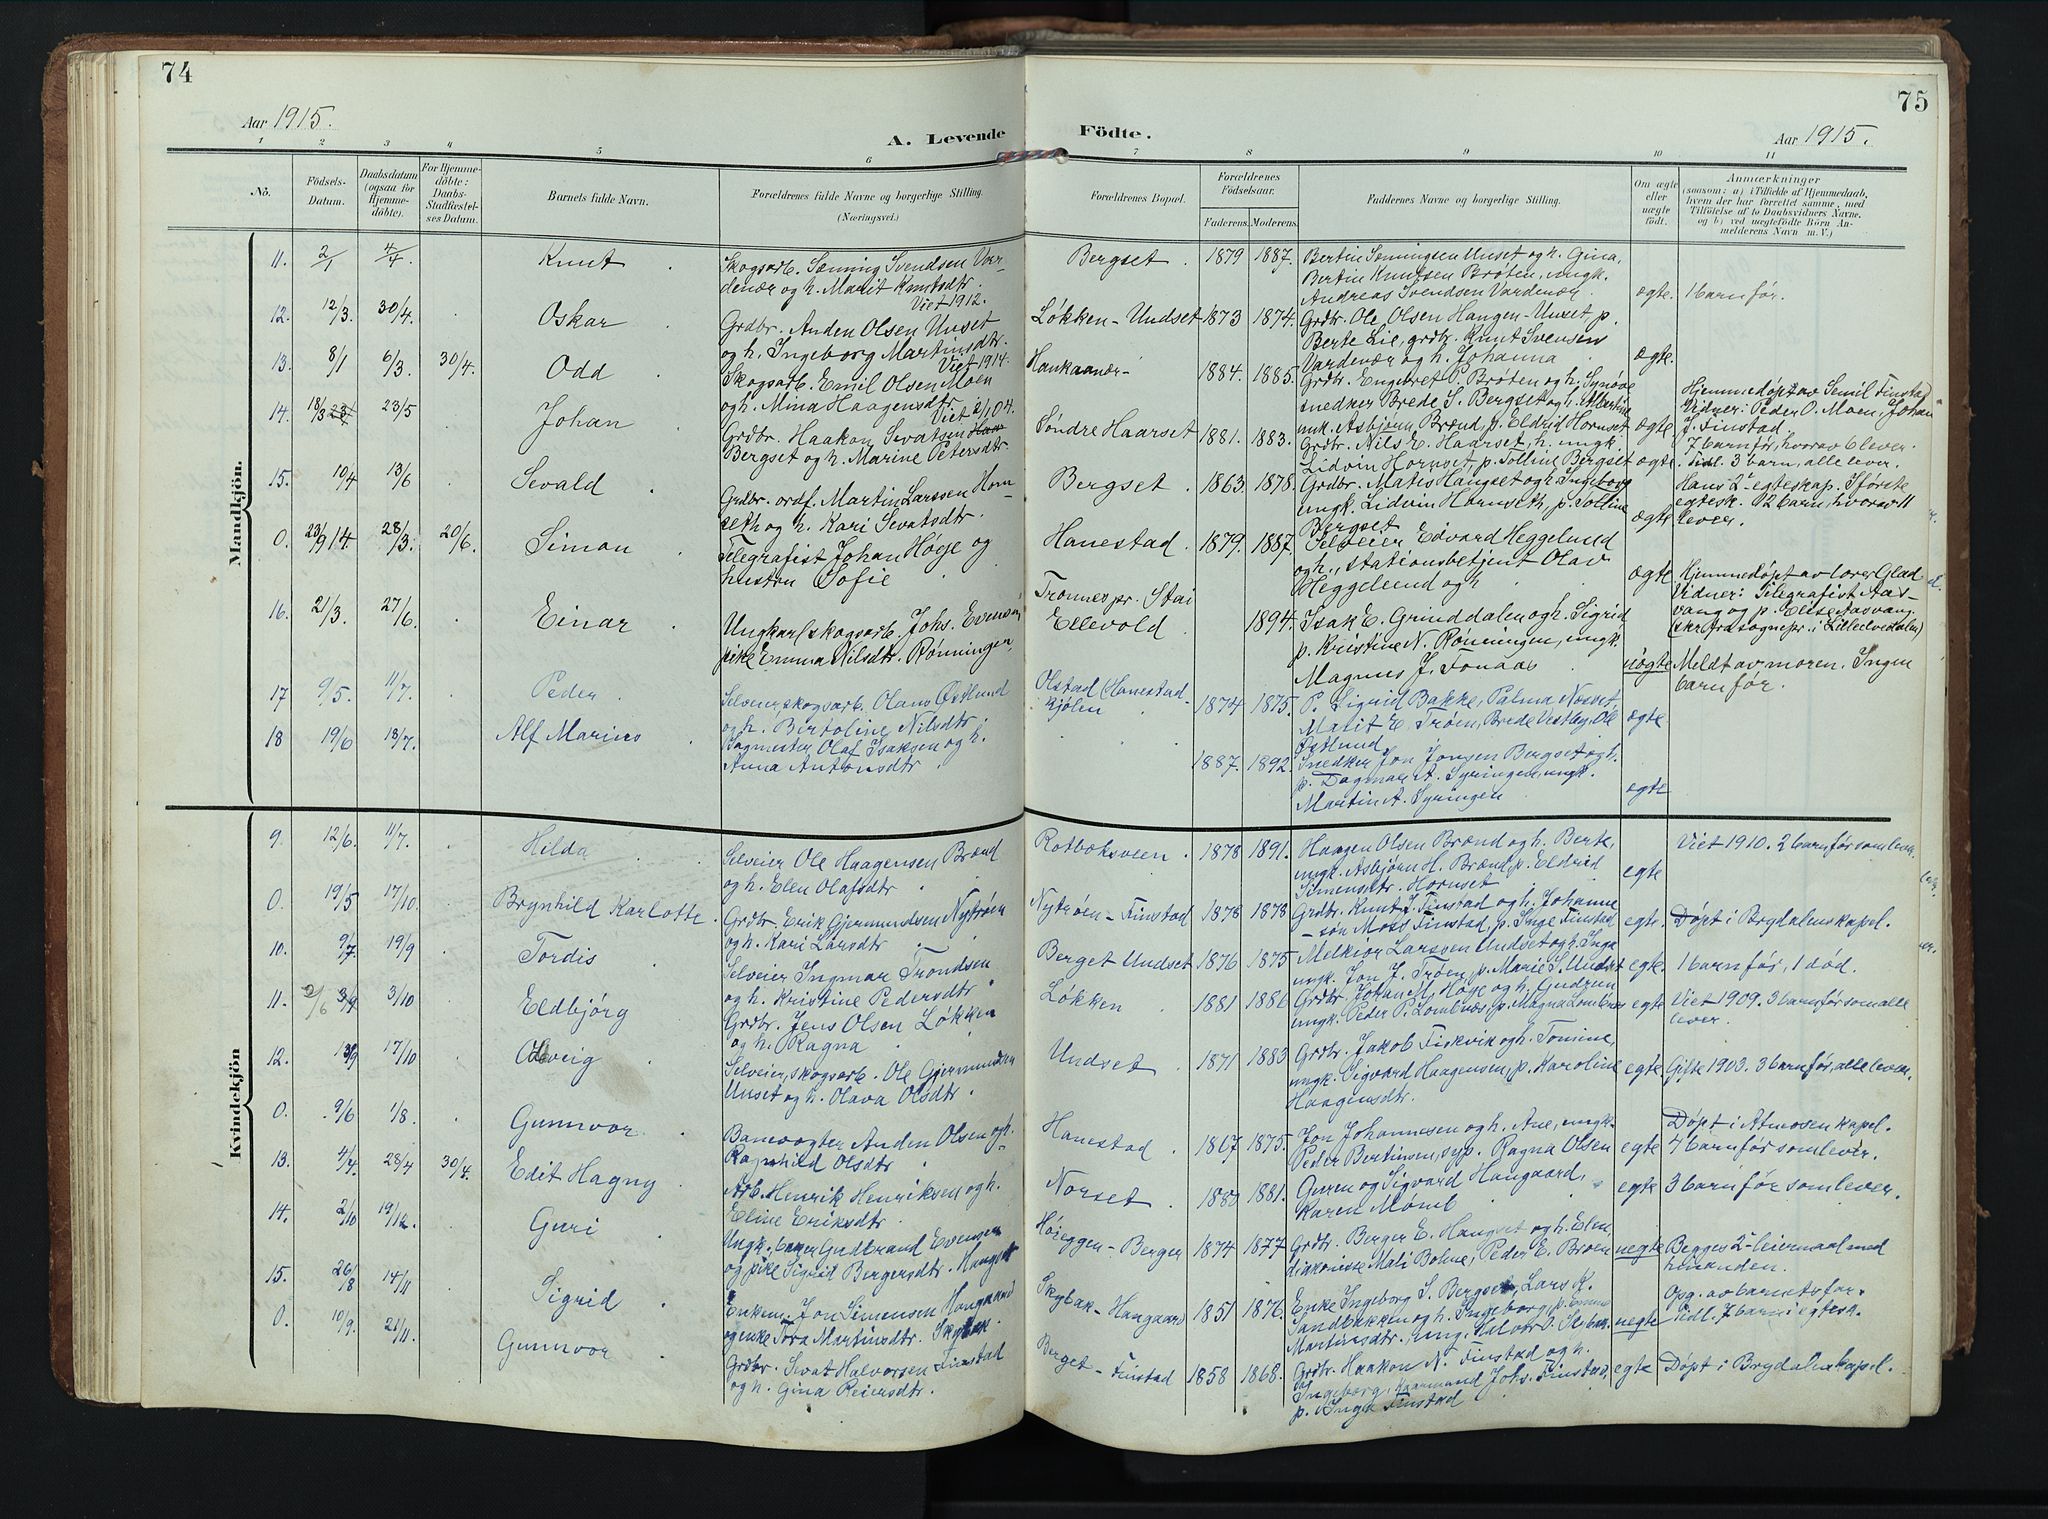 74
Aar 1915.
A. Levende
Födte.
Aar 1915.
75
1 2 3 4 5 6 7 8 9 10 11
No.
Födsels-Datum.
Daabsdatum (ogsaa for Hjemmedöbte).
For Hjemmedöbte: Daabs-Stadfæstelses Datum.
Barnets fulde Navn.
Forældrenes fulde Navne og borgerlige Stilling. (Næringsvei.)
Forældrenes Bopæl.
Forældrenes Födselsaar.
Faderens. Moderens.
Faddernes Navne og borgerlige Stilling.
Om ægte eller uægte födt.
Anmærkninger
(saasom: a) i Tilfælde af Hjemmedaab, hvem der har forrettet samme, med Tilföielse af to Daabsvidners Navne, og b) ved uægtefödte Börn Anmelderens Navn m. V.)
Mandkjön.
11. 2/1 4/4 Knut . Skogsarb. Sönning Svendsen Vardenær og h. Marit Knutsdtr. Viet 1912. Bergset . 1879 1887. Bertin Sönningsen Unset og h. Gina, Bertin Knutsen Bröten, ungk. Andreas Svendsen Vardenær. ægte. 1 barn før.
12. 12/3. 30/4. Oskar . Grdbr. Anden Olsen Unset og h. Ingeborg Martinsdtr. Viet 1914. Løkken-Undset 1873 1874. Grdbr. Ole Olsen Haugen-Unset, p. Berte Lie, grdbr. Knut Svensen Vardenær og h. Johanna ægte.
13. 8/1 6/3. 30/4. Odd . Skogsarb. Emil Olsen Moen og h. Mina Haagensdtr. 1884. 1885. Grdbr. Engebret P. Bröten og h. Synöve, snedker Brede S. Bergset og h. Martine, ungk. Asbjörn Brænd, p. Eldrid Hornset ægte Vidner: Peder O. Moen, Johan J. Finstad. 7 barn før, hvorav 6 lever.
14. 18/3 23/5 Johan . Grdbr. Haakon Sevatsen Bergset og h. Marine Petersdtr. Söndre Haarset 1881. 1883. Grdbr. Nils E. Haarset, h. ungk. Lidvin Hornset, p. Tolline Bergset ægte. Tidl. 3 barn, alle lever.
15. 10/4 13/6 Sevald . Grdbr. ordf. Martin Larssen Hornseth og h. Kari Sevatsdtr. Bergset . 1863. 1878. Grdbr. Mates Haugset og h. Ingeborg, ungk. Lidvin Hornseth, p. Tolline Bergset ægte Hans 2det egteskap. I første egtesk. 12 barn, hvorav 11 lever.
0. 23/9 14. 28/3. 20/6. Simon . Telegrafist Johan Höye og hustru Sofie Hanestad . 1879. 1887. Selveier Edvard Heggelund og h., stationsbetjent Olav Heggelund og h ægte Hjemmedøpt av lærer Glad Vidner: Telegrafist Aasvang og p. Elise Aasvang.
16. 21/3. 27/6. Einar . Ungkarl skogsarb. Johs. Evensen, pike Emma Nilsdtr. Rönningen, Trønnes pr. Stai Ellevold 1894. Isak E. Grinddalen og h. Sigrid p. Kristine N. Rønningen, ungk. Magnus J. Fonaas uægte Meldt av moren. Ingen barn før.
17 9/5. 11/7. Peder . Selveier skogsarb. Olaus Østlund og h. Bertoline Nilsdtr. Olstad (Hanestadkjölen 1874 1875. P. Sigrid Bakke, Palma Norset, Marit E. Trøen, Brede Vestby, Ole Østlund ægte
18 19/6 18/7. Alf Marius . Bagmester Olaf Isaksen og h. Anna Antonsdtr . 1887. 1892. Snedker Jon Jonsen Bergset og h. p. Dagmar A. Syringen, ungk. Martin A. Syringen ægte
Kvindekjön
9. 12/6. 11/7. Hilda . Selveier Ole Haagensen Brænd og h. Elen Olafsdtr Rotboksveen . 1878 1891. Haagen Olsen Brænd og h. Berte, ungk. Asbjörn H. Brænd, p. Eldrid Simensdtr. Hornset egte Viet 1910. 2 barn før som lever.
0. 19/5 17/10. Brynhild Karlotte. Grdbr. Erik Gjermundsen Nytrøen og h. Kari Larsdtr Nytrøen-Finstad 1878 1878 Grdbr. Knut J. Finstad og h. Johanne - son Moss Finstad, p. Inge Finstad egte. Døpt i Brydalens kapel.
10. 9/7 19/9 Tordis . Selveier Ingmar Trondsen og h. Kristine Pedersdtr Berget Undset 1876 1875 Melkior Larssen Undset og h. Inga ungk. Jon J. Trøen, p. Marie S. Undset egte. 1 barn før, 1 død.
11. 3/9 3/10 Eldbjörg . Grdbr. Jens Olsen Løkken og h. Ragna Løkken . 1881 1886 Grdbr. Johan M. Høye og h. Gudrun ungk. Peder P. Lombnæs, p. Magna Lombnæs egte Viet 1909. 3 barn før som alle lever.
12. 17/10 Selveier, skogsarb. Ole Gjermundsen Unset og h. Olava Olsdtr. Undset . 1871 1883 Grdbr. Jakob Fiskvik og h. Tomine, ungk. Sigvard Haagensen, p. Karoline Haagensdtr. egte Gifte 1903. 3 barn før, alle lever.
0. 9/6 1/8. Gunnvor . Banevogter Anden Olsen og h. Ragnhild Olsdtr . Hanestad . 1867 1875. Jon Johannesen og h. Ane, ungk. Peder Bertinsen, syp. Ragna Olsen egte Døpt i Atnosen kapel. 4 barn før som lever.
13. 4/4. 28/4 30/4. Edit Hagny Arb. Henrik Henriksen og h. Eline Eriksdtr. Norset . 1881. Guren og Sigvard Haugaard, Karen egte 3 barn før som lever.
14. 2/10 19/12. Guri . Ungk. Gudbrand Evensen og pike Sigrid Bergersdtr. Haugset Høieggen-Berger 1874 1877 Grdbr. Berger E. Haugset og h. Elen, diakonisse Mali Bohne, Peder E. Broen uegte Begges 2det leiermaal med hinanden.
15. 26/8 14/11 Sigrid . Enkem. Jon Simensen Haugaard og enke Tora Martinsdtr. Skybak. Skybak-Haugaard 1851 1876. Enke Ingeborg S. Bergset, Lars K. Sandbakken og h. Ingeborg, p. Emma Martinsdtr. uegte Opg. av barnets far. Tidl. 7 barn i egtesk.
0. 10/9. 21/11. Gunnvor . Grdbr. Sevat Halvorsen Finstad og h. Gina Reiersdtr. Berget-Finstad 1858 1868. Grdbr. Haakon N. Finstad og h. Ingeborg, Kaarmand Johs. Finstad, p. Inga Finstad egte Døpt i Brydalens kapel.